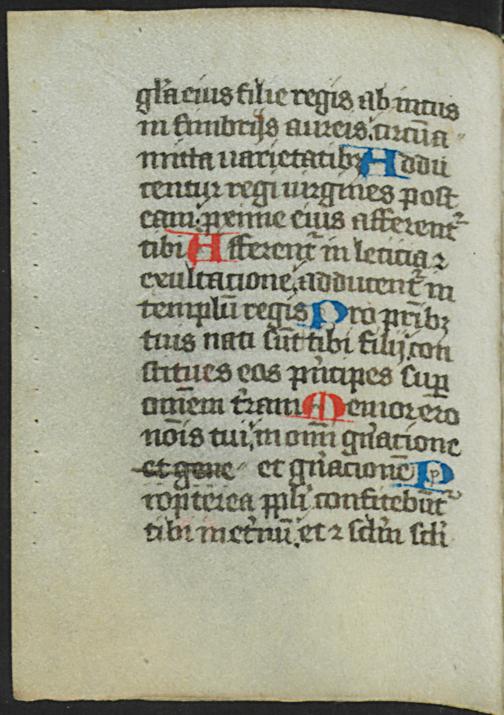 gl̄a eius filie regis ab intus
in fimbrijs aureis circūa
micta uarietatibꝫ Addu
centur regi uirgines post
eam: ꝓxime eius afferent᷑
tibi Afferent᷑ in leticia ⁊
exultatione, adducent᷑ in
templū regis Pro pr̄ibꝫ
tuis nati sūt tibi filij con
stitues eos pⁱncipes suꝑ
omēm tr̄am Memor ero
nōis tui, in omī gn̄atione
et gene et gn̄acionē P
ropterea ppl̄i confitebūt᷑
tibi in et̄nū, et ⁊ sclm̄ scl̄i